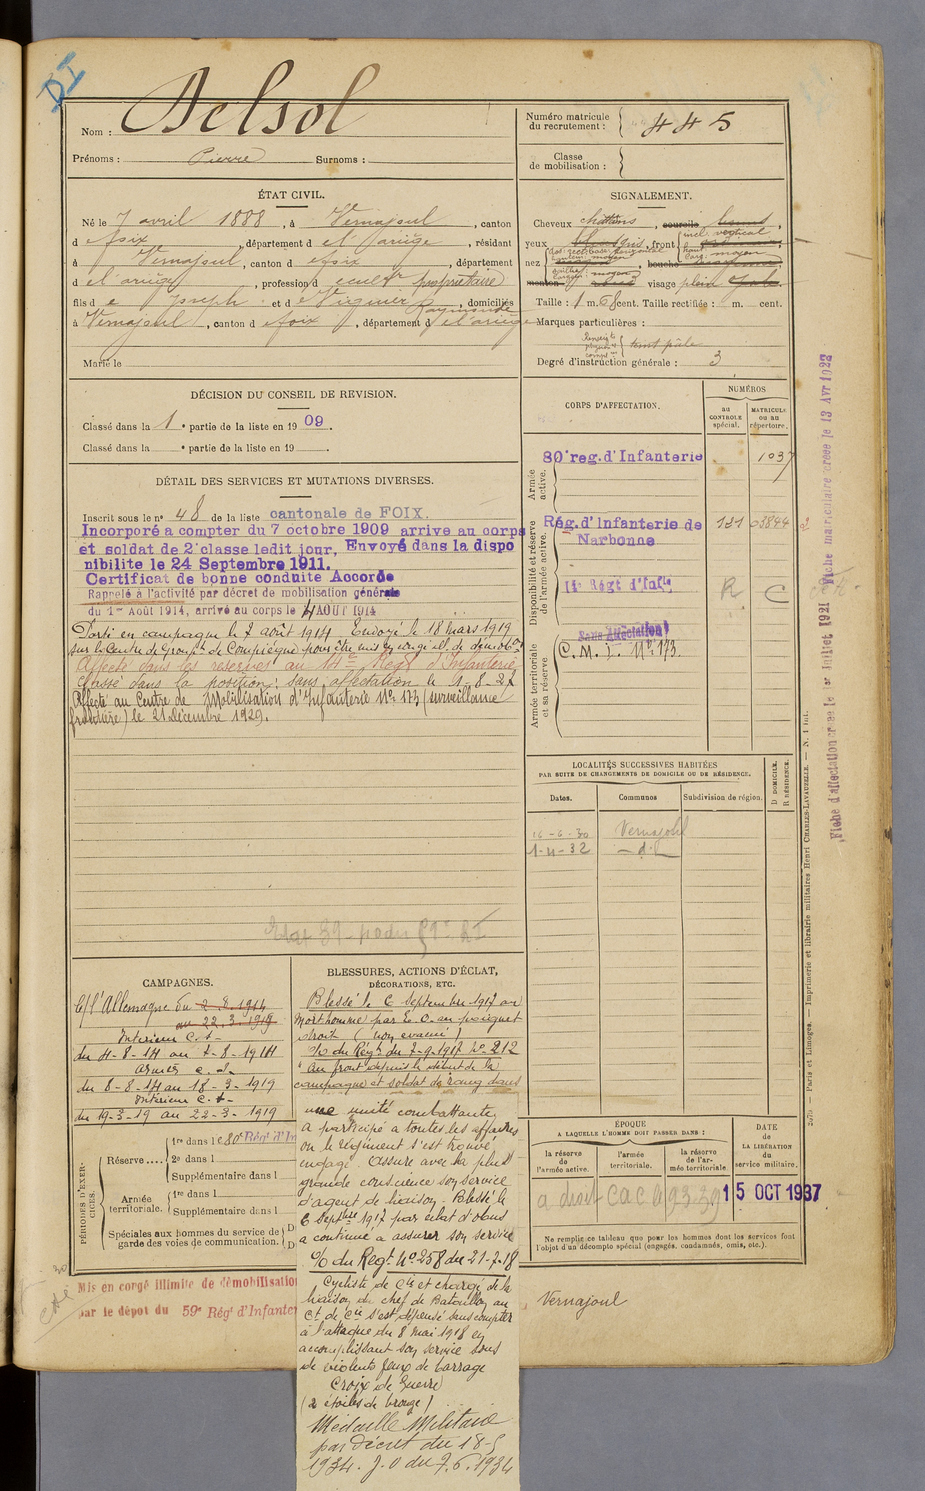 DI
Nom : Delsol
Prénoms : Pierre Surnoms :
Numéro matricule du recrutement : 445
Classe de mobilisation :
ÉTAT CIVIL.
Né le 7 avril 1888, à Vernajoul, canton
d e foix, département d e l'ariège, résidant
à Vernajoul, canton d e foix, département
d e l'ariège, profession d e cultr propriétaire
fils d e Joseph et d e Virginie Raymonde, domiciliés
à Vernajoul, canton d e foix, département d e l'ariège
Marié le
SIGNALEMENT.
Cheveux chattins, sourcils
yeux gris, front { incl: vertical
nez { dos: rect. base: horizontal, bouche moyen
menton visage plein
Taille : 1 m. 68 cent. Taille rectifiée : m. cent.
Marques particulières :
teint pâle
Degré d'instruction générale : 3
DÉCISION DU CONSEIL DE REVISION.
Classé dans la 1 e partie de la liste en 19 09.
Classé dans la e partie de la liste en 19 .
DÉTAIL DES SERVICES ET MUTATIONS DIVERSES.
Inscrit sous le n° 48 de la liste cantonale de FOIX.
Incorporé a compter du 7 octobre 1909 arrive au corps
et soldat de 2e classe ledit jour, Envoyé dans la dispo
nibilite le 24 Septembre 1911.
Certificat de bonne conduite Accordé
Rappelé à l'activité par décret de mobilisation générale
du 1er Août 1914, arrivé au corps le 4 AOUT 1914
Parti en campagne le 8 août 1914 Envoyé le 18 Mars 1919
sur le Centre de Groupt de Compiègne pour être mis en congé ill. de démobon
Affecté dans les réserves au 14e Régt d'Infanterie
Classé dans la position: sans affectation le 1-8-27
Affecté au Centre de Mobilisation d'Infanterie N° 173 (surveillance
frontière) le 21 décembre 1929.
CORPS D'AFFECTATION.
NUMÉROS
au CONTROLE spécial.
MATRICULE ou au répertoire.
Armée active.
80e reg. d'Infanterie 1037
Disponibilité et réserve de l'armée active.
Rég. d'Infanterie de Narbonne 131 03844
14e Régt d'Infie R C
Armée territoriale et sa réserve
Sans affectation
C. M. I. N° 173.
LOCALITÉS SUCCESSIVES HABITÉES
PAR SUITE DE CHANGEMENTS DE DOMICILE OU DE RÉSIDENCE.
Dates. Communes Subdivision de région.
D. DOMICILE. R. RÉSIDENCE.
16-6-30 Vernajoul
1-4-32 - d° -
CAMPAGNES.
C/ l'Allemagne du 2.8.1914
au 22.3.1919
Interieur C. S.
du 4-8-14 au 7-8-1914
Armées C. D.
du 8-8-14 au 18-3-1919
Interieur C. S.
du 19-3-19 au 22-3-1919
BLESSURES, ACTIONS D'ÉCLAT, DÉCORATIONS, ETC.
Blessé le 6 Septembre 1917 au
Morthomme par E. O. au poignet
droit (non evacué)
O/ du Régt du 7-9-1917 N° 212
"au front depuis le début de la
campagne et soldat de rang dans
une unité combattante,
A participé a toutes les affaires
ou le regiment s'est trouvé
engagé. Assure avec la plus
grande conscience son service
d'agent de liaison. Blessé le
6 Septbre 1917 par éclat d'obus
a continué a assurer son service
O/ du Regt N° 258 du 21-7-18
Cycliste de Cie et chargé de la
liaison du chef de Bataillon au
Ct de Cie s'est dépensé sans compter
à l'attaque du 8 mai 1918 en
accomplissant son service sous
de violents feux de barrage
Croix de Guerre
(2 étoiles de bronze)
Médaille Militaire
par décret du 18-5
1934. J.O du 7.6.1934
PÉRIODES D'EXERCICES.
Réserve.... 1re dans l e 80e Régt d'In
2e dans l
Supplémentaire dans l
Armée territoriale. 1re dans l
Supplémentaire dans l
Spéciales aux hommes du service de garde des voies de communication. D
D
ÉPOQUE
A LAQUELLE L'HOMME DOIT PASSER DANS :
la réserve de l'armée active.
l'armée territoriale.
la réserve de l'armée territoriale
DATE de LA LIBÉRATION du service militaire.
a droit
15 OCT 1937
Ne remplir ce tableau que pour les hommes dont les services font l'objet d'un décompte spécial (engagés, condamnés, omis, etc.).
Mis en congé illimite de démobilisation
par le dépot du 59e Régt d'Infanter
Vernajoul
Fiche d'affectation créée le 1er Juillet 1921 Fiche matriculaire créée le 13 Avr 1922
Paris et Limoges. — Imprimerie et librairie militaires Henri CHARLES-LAVAUZELLE. — N. 1 int.